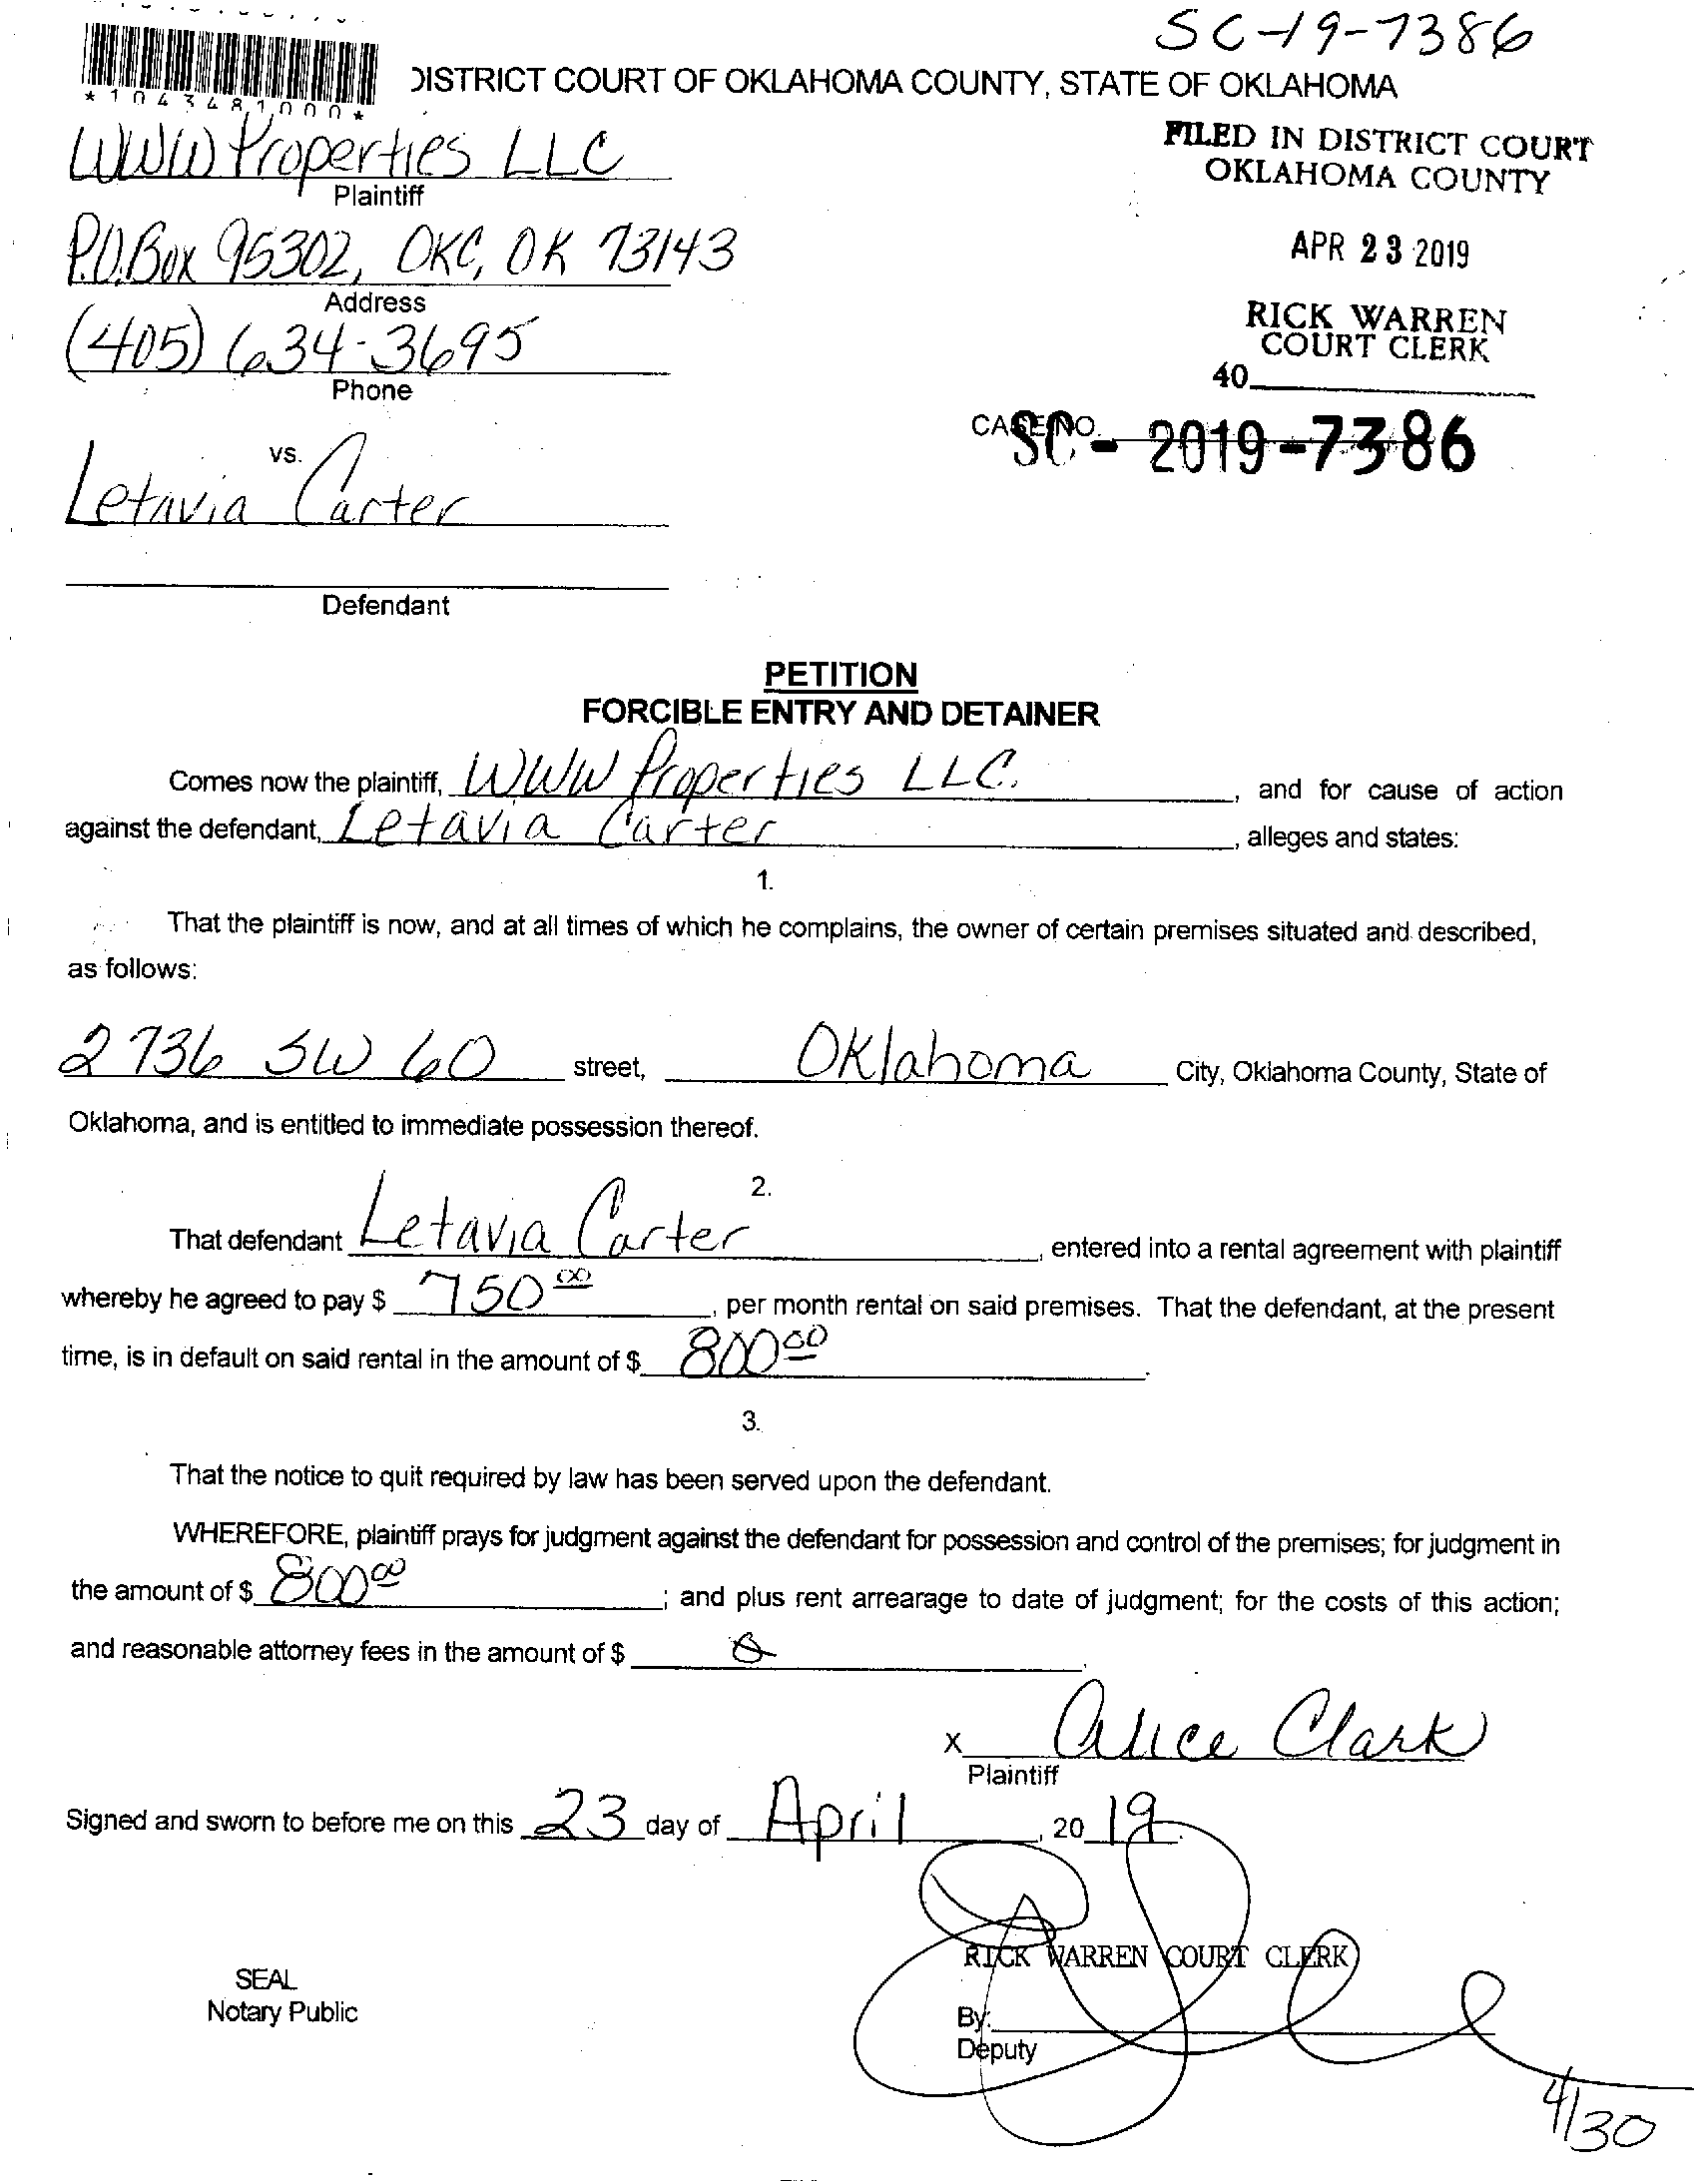 SC-19-7386
*1043481000*
DISTRICT COURT OF OKLAHOMA COUNTY, STATE OF OKLAHOMA
WWW Properties LLC
Plaintiff
FILED IN DISTRICT COURT
OKLAHOMA COUNTY
P.O. Box 95302, OKC, OK 73143
Address
APR 23 2019
(405) 634-3695
Phone
RICK WARREN
COURT CLERK
40
CASE NO. SC - 2019-7386
vs.
Letavia Carter
Defendant
PETITION
FORCIBLE ENTRY AND DETAINER
Comes now the plaintiff, WWW Properties LLC. , and for cause of action
against the defendant, Letavia Carter , alleges and states:
1.
That the plaintiff is now, and at all times of which he complains, the owner of certain premises situated and described,
as follows:
2736 SW 60 street, Oklahoma City, Oklahoma County, State of
Oklahoma, and is entitled to immediate possession thereof.
2.
That defendant Letavia Carter , entered into a rental agreement with plaintiff
whereby he agreed to pay $ 750 00 , per month rental on said premises. That the defendant, at the present
time, is in default on said rental in the amount of $ 800 00 .
3.
That the notice to quit required by law has been served upon the defendant.
WHEREFORE, plaintiff prays for judgment against the defendant for possession and control of the premises; for judgment in
the amount of $ 800 00 ; and plus rent arrearage to date of judgment; for the costs of this action;
and reasonable attorney fees in the amount of $ 0 .
X Alice Clark
Plaintiff
Signed and sworn to before me on this 23 day of April , 20 19.
RICK WARREN COURT CLERK
SEAL
Notary Public
By:
Deputy
4/30